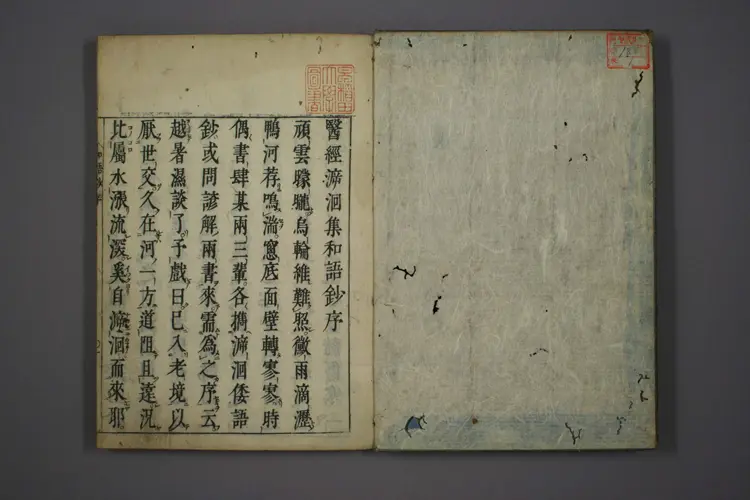 醫經溯洄集和語鈔序
頑雲朦朧烏輪維難照黴雨滴瀝
鴨河荐鳴湍窻底面壁轉寥寥時
偶書肆某兩三輩各攜溯洄倭語
鈔或問諺解兩書來需為之序云
越暑濕談了予戲曰已入老境以
厭世交久在河一方道阻且遠況
比屬水漲流深奚自溯洄而來耶